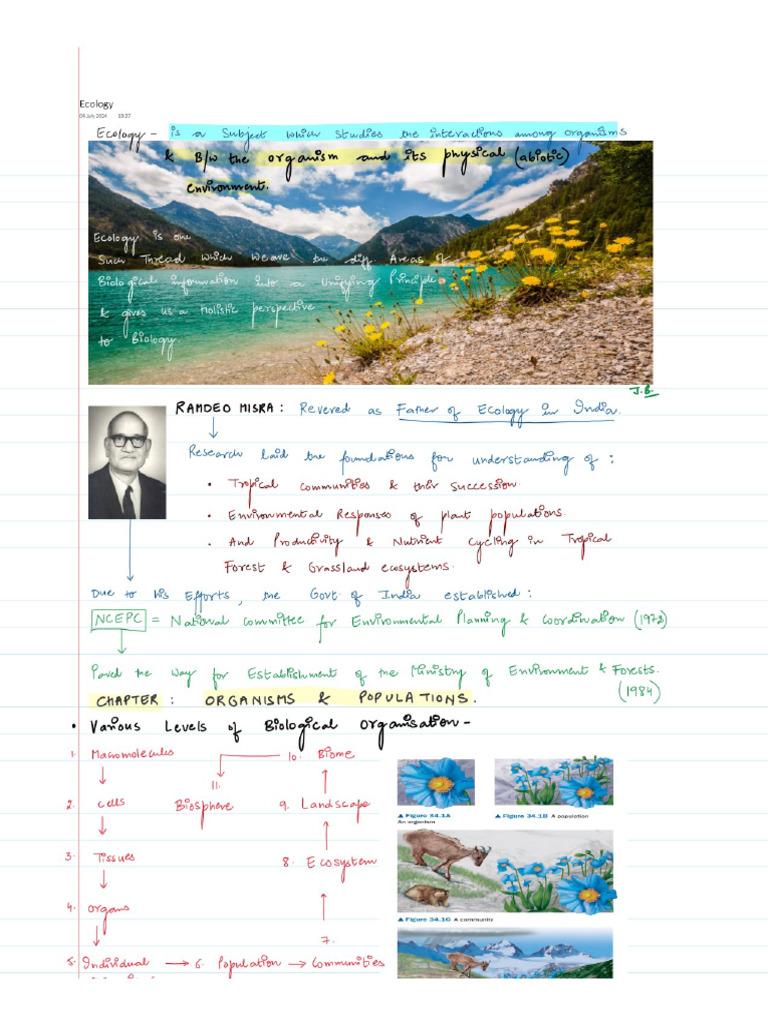 Ecology
04 July 2024 19:27
Ecology - is a Subject which studies the interactions among organisms
& B/w the organism and its physical (abiotic)
environment.
Ecology is one
Such Thread which weave the diff Areas of
Biological information into a Unifying Principle
& gives us a holistic perspective
to Biology.
J.B.
RAMDEO MISRA : Revered as Father of Ecology in India.
Research laid the foundations for understanding of :
• Tropical communities & their succession.
• Environmental Responses of plant populations.
• And Productivity & Nutrient Cycling in Tropical
Forest & Grassland ecosystems.
Due to his Efforts, the Govt. of India established :
NCEPC = National committee for Environmental Planning & coordination (1972)
Paved the way for Establishment of the Ministry of Environment & Forests.
(1984)
CHAPTER : ORGANISMS & POPULATIONS.
• Various Levels of Biological Organisation -
1. Macromolecules
10. Biome
11.
2. cells
Biosphere
9. Landscape
▲ Figure 34.1A
An organism
▲ Figure 34.1B A population
3. Tissues
8. Ecosystem
4. organs
▲ Figure 34.1C A community
7.
5. Individual → 6. Population → Communities